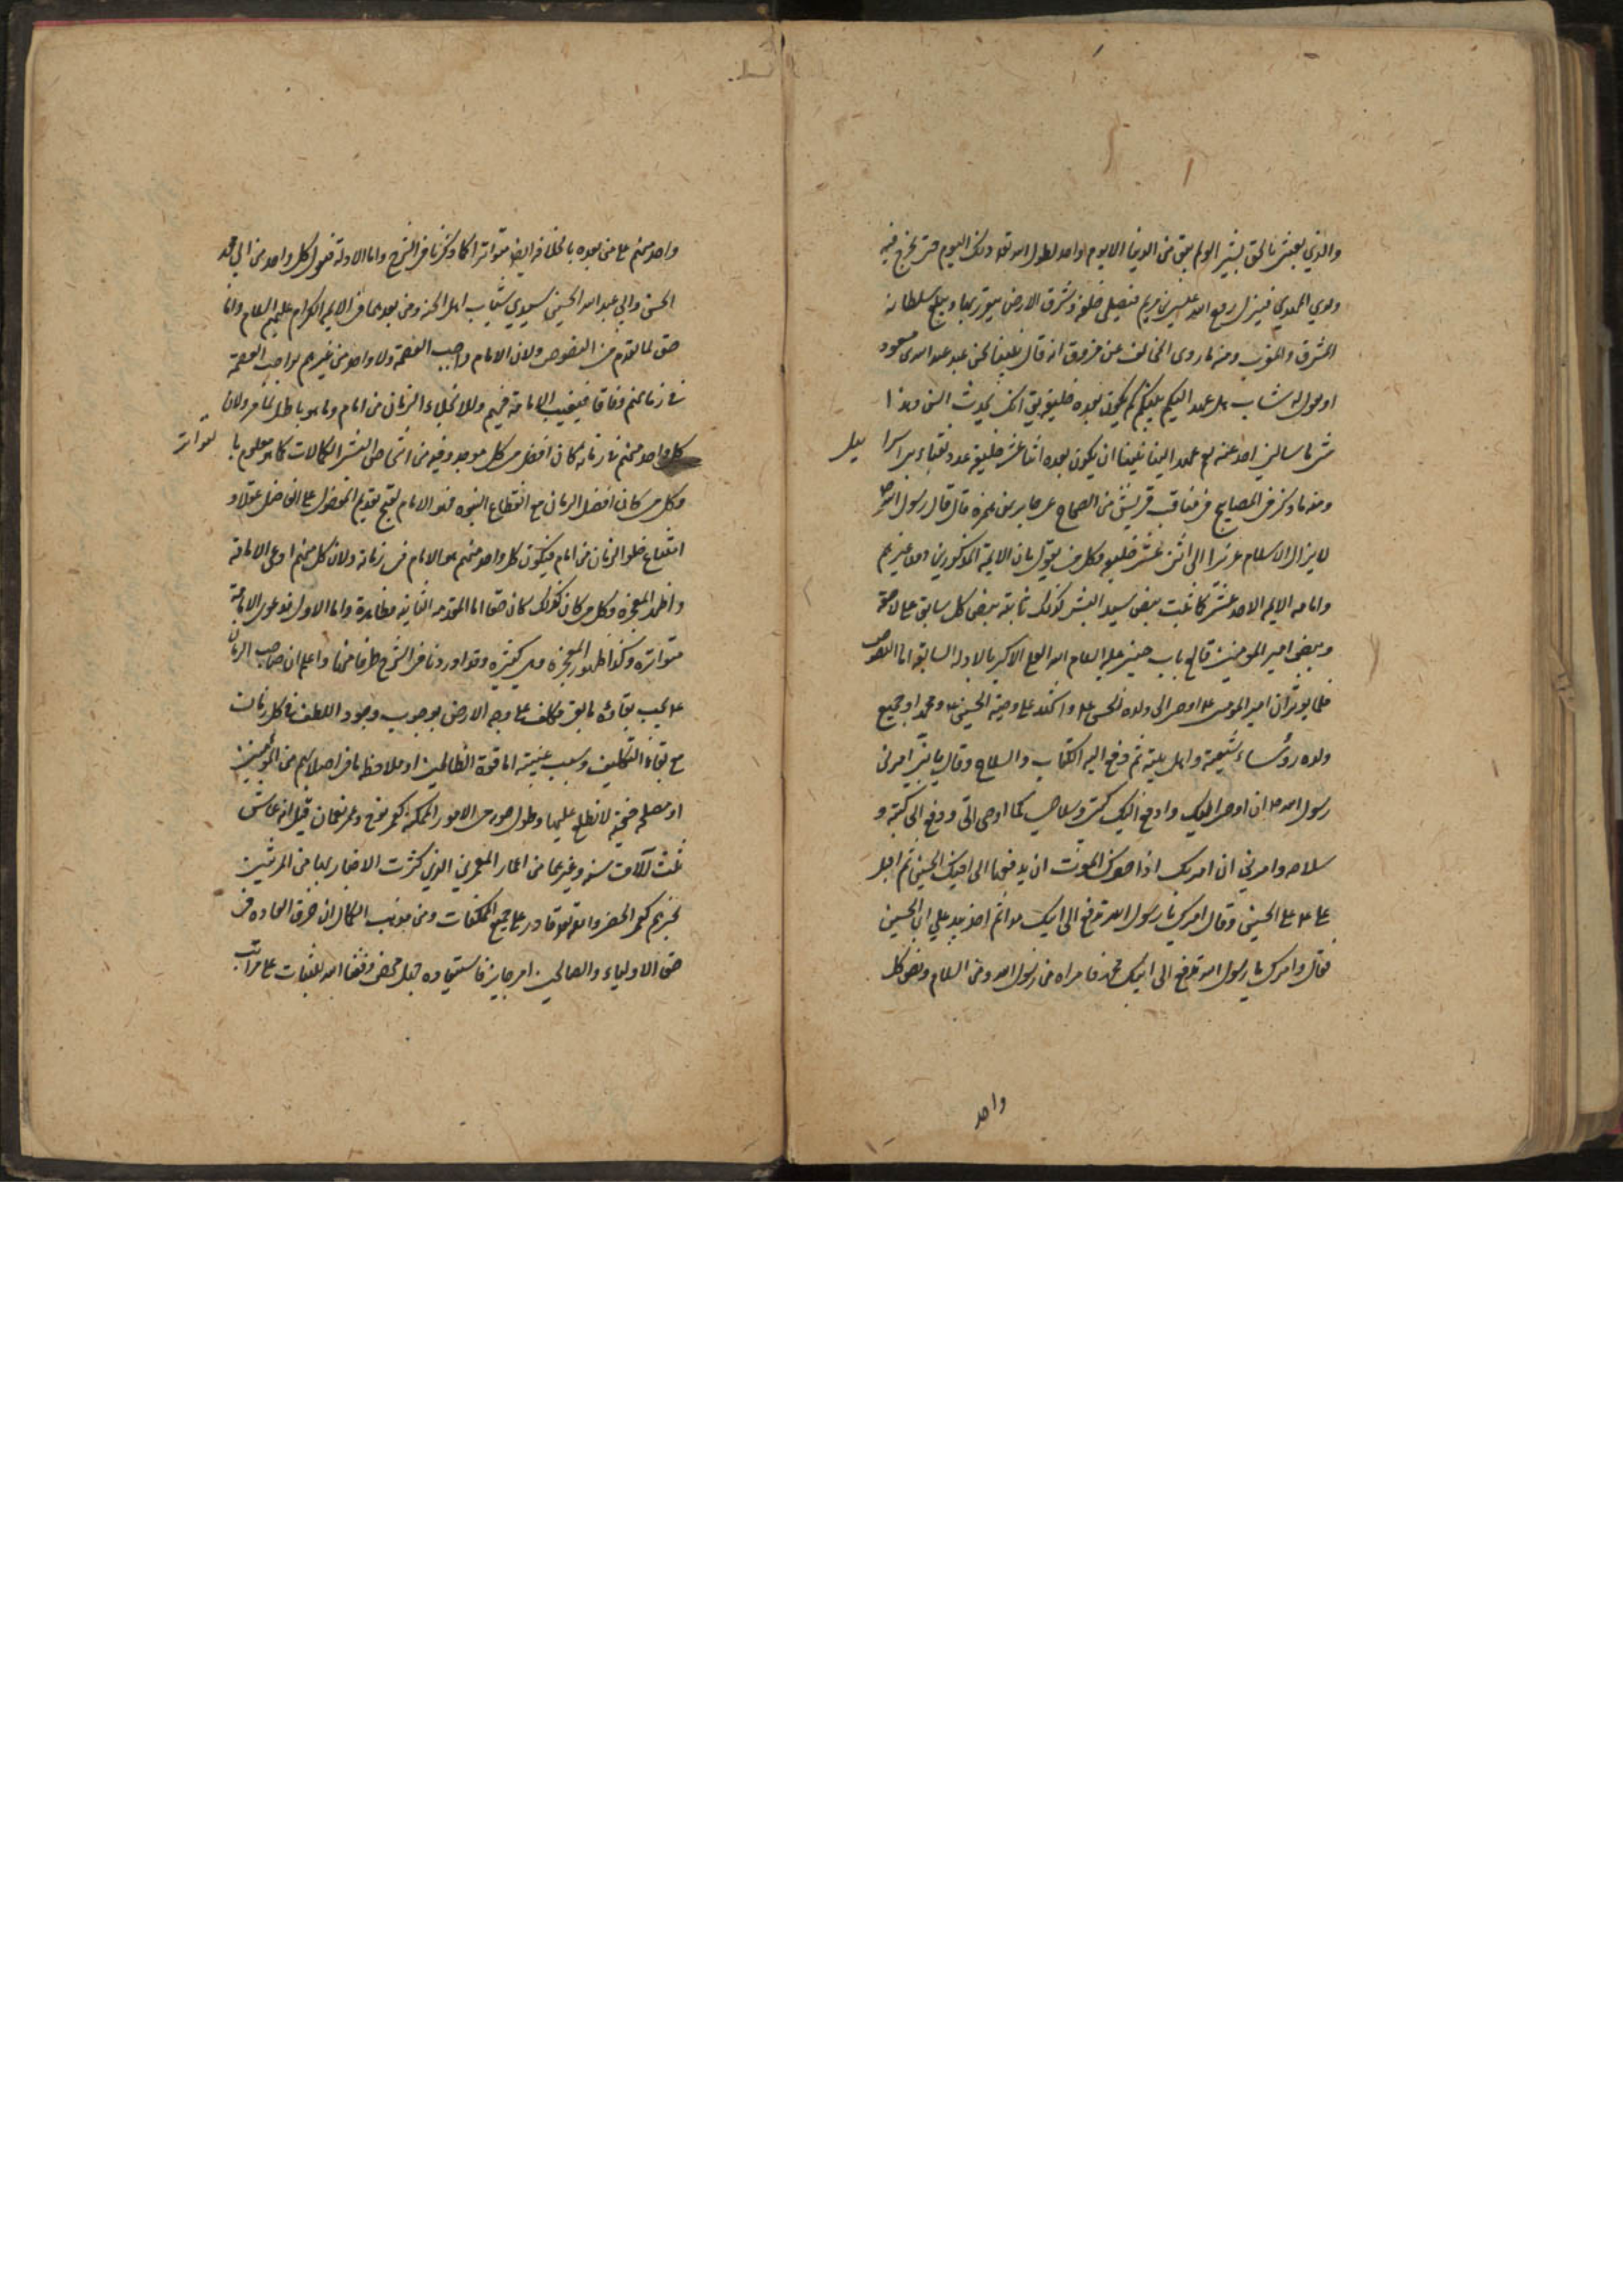 والذي بعثني بالحق بشيرا لو لم يبق من الدنيا الا يوم واحد لطول الله تعالى ذلك اليوم حتى يخرج فيه
ولدي المهدي فينزل روح الله عيسى بن مريم فيصلي خلفه وتشرق الارض بنور ربها ويبلغ سلطانه
المشرق والمغرب ومنه ما روى المخالف عن مسروق انه قال بينا نحن عند عبد الله بن مسعود
اذ يقول له شاب هل عهد اليكم نبيكم كم يكون بعده خليفة قال انك لحدث السن وهذا
شئ ما سالني احد عنه نعم عهد الينا نبينا ان يكون بعده اثنا عشر خليفة عدد نقباء بني اسرا ييل
ومنه ما ذكر في المصابيح في مناقب قريش من الصحاح عن جابر بن سمرة قال قال رسول الله ص
لا يزال الاسلام عزيزا الى اثنى عشر خليفه وكل من يقول بان الايمة المذكورين دون غيرهم
وامامه الايمه الاحد عشر كما ثبت بنص سيد البشر كذلك ثابتة بنص كل سابق على لاحقه
وبنص امير المومنين قالع باب خيبر عليه السلام
فلما يوثر ان امير المومنين ع اوصى الى ولده الحسن ع واشهد على وصيته الحسين ع ومحمدا وجميع
ولده رؤساء شيعته واهل بيته ثم دفع اليه الكتاب والسلاح وقال يا بني امرني
رسول الله ص ان اوصي اليك وادفع اليك كتبي وسلاحي كما اوصى الي ودفع الي كتبه و
سلاحه وامرني ان امرك اذا حضرك الموت ان تدفعها الى اخيك الحسين ثم اقبل
على الحسين وقال امرك رسول الله ص ان تدفع الى ابنك هذا ثم اخذ بيد علي ابن الحسين
فقال وامرك رسول الله تدفع الى ابنك محمد فاقراه من رسول الله ومني السلام ونص كل
واحد
واحد منهم على من بعده بالخلافه ايضا متواترا كما ذكرنا في الشرح واما الادلة فنقول كل واحد من ابي محمد
الحسن وابي عبد الله الحسين سيدي شباب اهل الجنه ومن بعدهما من الايمه الكرام عليهم السلام
حق لما تقدم من النصوص ولان الامام واجب العصمة ولا واحد من غيرهم بواجب العصمة
في زمانهم وفاقا فيتعين الامامة فيهم وللا لخلا الزمان من امام وهو باطل لما مر ولان
كل واحد منهم في زمانه كان افضل من كل موجود فيه من اشخاص البشر الكمالات كما هو معلوم با لتواتر
وكل من كان افضل الزمان مع انقطاع النبوه فهو الامام لقبح تقديم المفضول على الفاضل عقلا و
امتناع خلو الزمان من امام فيكون كل واحد منهم هو الامام في زمانه ولان كل منهم ادعى الامامة
واظهر المعجزه وكل من كان كذلك كان حقا اما المقدمه الثانيه فظاهرة واما الاولى فدعوى الامامة
متواتره وكذا ظهور المعجزه وهي كثيره وقد اوردنا في الشرح طرفا منها واعلم ان صاحب الزمان
ع يجب بقاؤه ما بقي مكلف على وجه الارض بوجوب وجود اللطف في كل زمان
مع بقاء التكليف وسبب غيبته اما قوة الظالمين او ملاحظه ما في اصلابهم من المومنين
او مصلحه خفيه لا نطلع عليها وطول عمره من الامور الممكنه كعمر نوح وعمر لقمان قيل انه عاش
ثلث آلاف سنه وغيرهما من اعمار المعمرين الذين كثرت الاخبار بها
كعمر الخضر والله تعالى قادر على جميع الممكنات ومن مذهب الكمال ان خرق العاده في
حق الاولياء والصالحين امر جايز فاستبعاده جهل محض وفقنا الله للثبات على مراتب